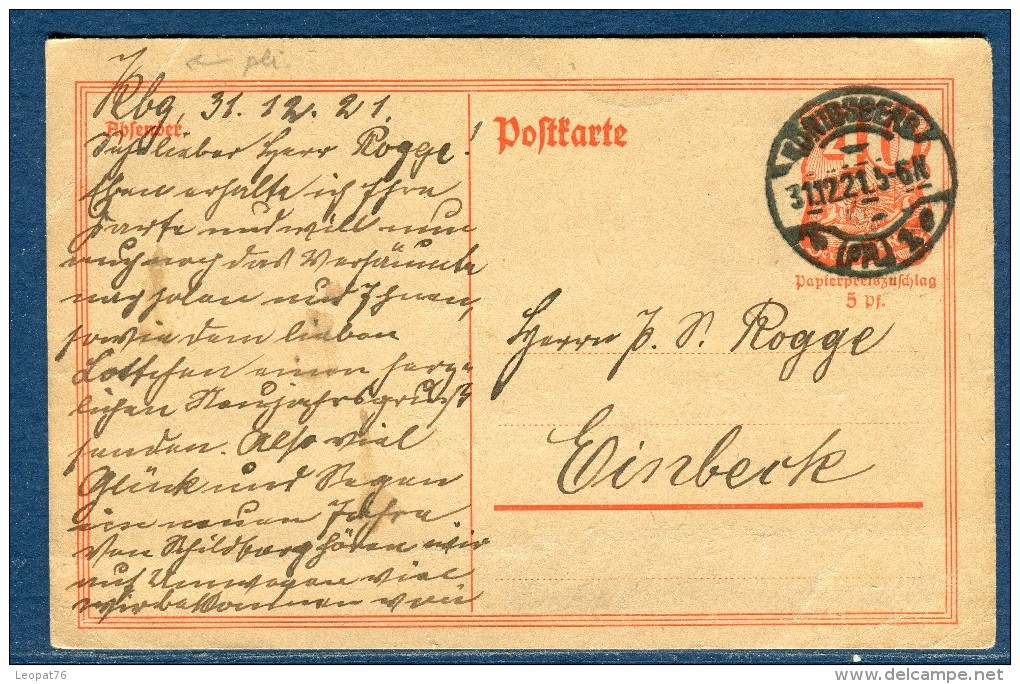 pli.
Kbg, 31.12.21.
Absender
Sehr lieber Herr Rogge!
Eben erhalte ich Ihre
Karte und will nun
auch noch das Versäumte
nachholen und Ihnen,
sowie dem lieben
Lottchen einen herz-
lichen Neujahrsgruß
senden. Also viel
Glück und Segen
im neuen Jahre.
Von Schildberg hören wir
auf Umwegen viel
wir bekommen von
Postkarte
KÖNIGSBERG
31.12.21.5-6N
(PR.) 1
40
Papierpreiszuschlag
5 Pf.
Herrn P. S. Rogge
Einbeck
Leopat76
delcampe.net